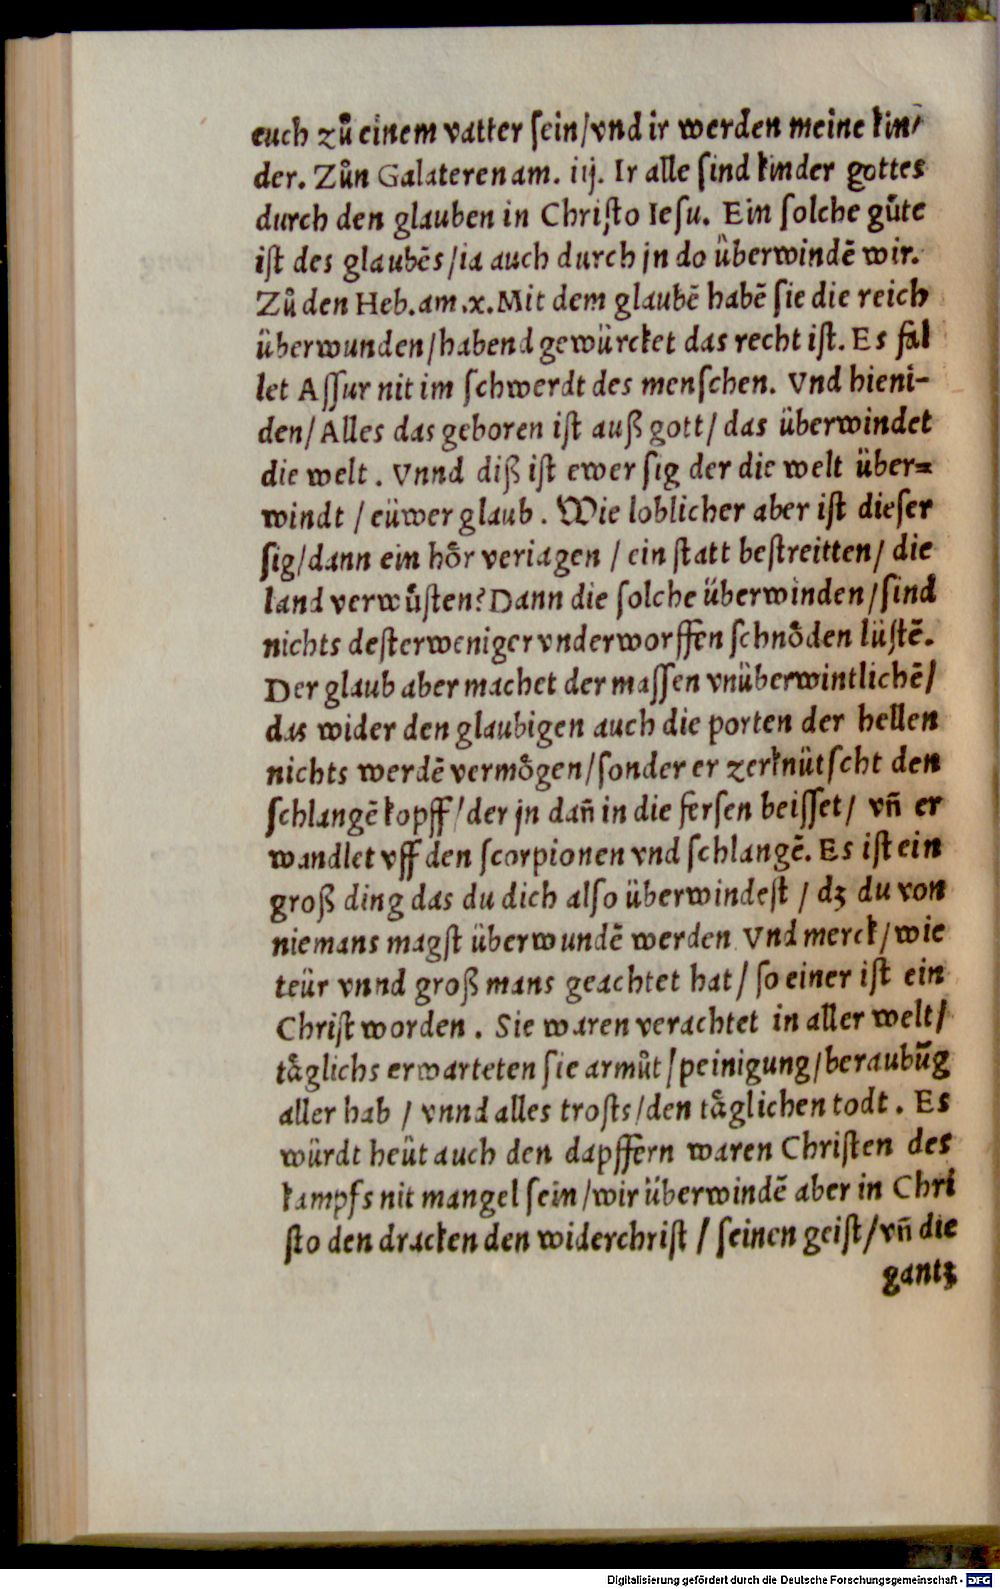 euch zů einem vatter ſein/vnd ir werden meine kin/
der. Zůn Galateren am. iij. Ir alle ſind kinder gottes
durch den glauben in Chriſto Ieſu. Ein ſolche gůte
iſt des glaubēs/ia auch durch jn do überwindē wir.
Zů den Heb.am.x.Mit dem glaubē habē ſie die reich
überwunden/habend gewürcket das recht iſt. Es fal
let Aſſur nit im ſchwerdt des menſchen. Vnd hieni-
den/Alles das geboren iſt auß gott/das überwindet
die welt. Vnnd diß iſt ewer ſig der die welt über=
windt/eüwer glaub. Wie loblicher aber iſt dieſer
ſig/dann ein hoͤr veriagen/ein ſtatt beſtreitten/die
land verwůſten?Dann die ſolche überwinden/ſind
nichts deſterweniger vnderworffen ſchnoͤden lüſtē.
Der glaub aber machet der maſſen vnüberwintlichē/
das wider den glaubigen auch die porten der hellen
nichts werdē vermoͤgen/ſonder er zerknütſcht den
ſchlangē kopff/der jn dañ in die ferſen beiſſet/ vñ er
wandlet vff den ſcorpionen vnd ſchlangē. Es iſt ein
groß ding das du dich alſo überwindeſt/dz du von
niemans magſt überwundē werden Vnd merck/wie
teür vnnd groß mans geachtet hat/ſo einer iſt ein
Chriſt worden. Sie waren verachtet in aller welt/
taͤglichs erwarteten ſie armůt/peinigung/beraubūg
aller hab/vnnd alles troſts/den taͤglichen todt. Es
würdt heüt auch den dapffern waren Chriſten des
kampfs nit mangel ſein/wir überwindē aber in Chri
ſto den dracken den widerchriſt/ſeinen geiſt/vñ die
gantz
Digitalisierung gefördert durch die Deutsche Forschungsgemeinschaft - DFG